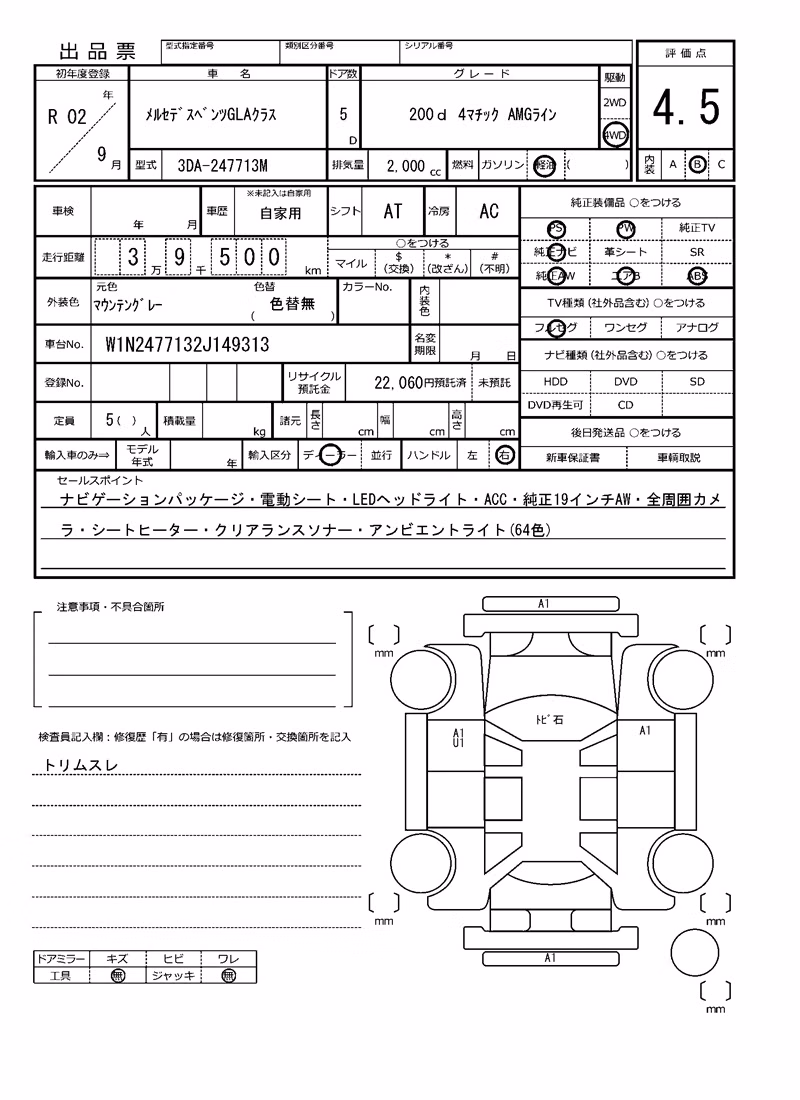 出品票 型式指定番号 類別区分番号 シリアル番号
評価点
4.5
初年度登録 車名 ドア数 グレード 駆動
R 02 年 9 月
メルセデスベンツGLAクラス 5 D 200d 4マチック AMGライン
2WD
4WD
型式 3DA-247713M 排気量 2,000 cc 燃料 ガソリン 軽油 ( )
内装 A B C
車検 年 月 車歴 ※未記入は自家用 自家用 シフト AT 冷房 AC
走行距離 3 万 9 千 5 0 0 km
○をつける
マイル $(交換) *(改ざん) #(不明)
外装色 元色 マウンテングレー 色替 色替無 ( ) カラーNo. 内装色
車台No. W1N2477132J149313 名変期限 月 日
登録No. リサイクル預託金 22,060円預託済 未預託
定員 5( )人 積載量 kg 諸元 長さ cm 幅 cm 高さ cm
輸入車のみ⇒ モデル年式 年 輸入区分 ディーラー 並行 ハンドル 左 右
純正装備品 ○をつける
PS PW 純正TV
純正ナビ 革シート SR
純正AW エアB ABS
TV種類(社外品含む)○をつける
フルセグ ワンセグ アナログ
ナビ種類(社外品含む)○をつける
HDD DVD SD
DVD再生可 CD
後日発送品 ○をつける
新車保証書 車輌取説
セールスポイント
ナビゲーションパッケージ・電動シート・LEDヘッドライト・ACC・純正19インチAW・全周囲カメ
ラ・シートヒーター・クリアランスソナー・アンビエントライト(64色)
注意事項・不具合箇所
検査員記入欄：修復歴「有」の場合は修復箇所・交換箇所を記入
トリムスレ
ドアミラー キズ ヒビ ワレ
工具 無 ジャッキ 無
A1
mm mm
トビ石
A1
U1
A1
mm mm
A1
mm